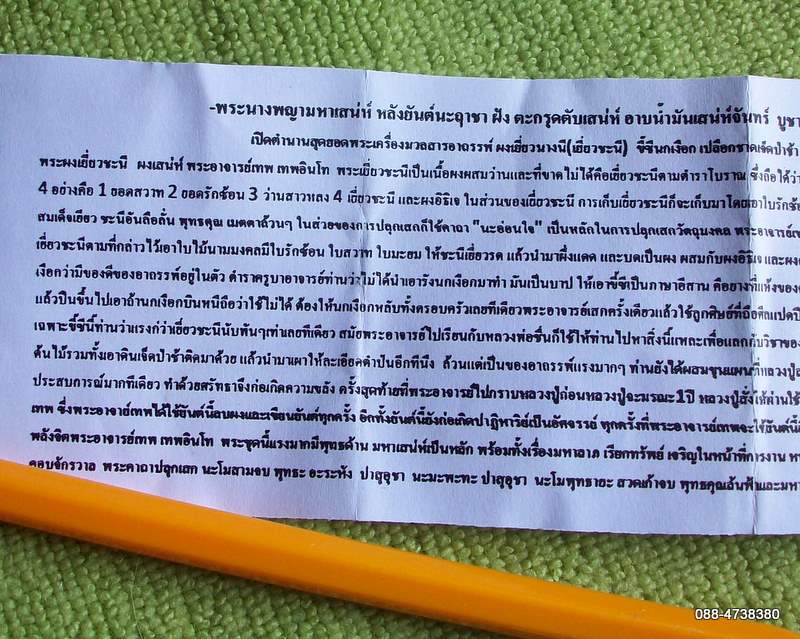 -พระนางพญามหาเสน่ห์ หลังยันต์นะฤาชา ฝัง ตะกรุดดับเสน่ห์ อาบน้ำมันเสน่ห์จันทร์ บูชา
เปิดตำนานสุดยอดพระเครื่องมวลสารอาถรรพ์ ผงเยี่ยวนางนี(เยี่ยวชะนี) ขี้ซีนกเงือก เปลือก เจ็ดป่าช้า
พระผงเยี่ยวชะนี ผงเสน่ห์ พระอาจารย์เทพ เทพอินโท พระเยี่ยวชะนีเป็นเนื้อผงผสมว่านและที่ขาดไม่ได้คือเยี่ยวชะนีตามตำราโบราณ ซึ่งถือได้ว่า
4 อย่างคือ 1 ยอดสวาท 2 ยอดรักซ้อน 3 ว่านสาวหลง 4 เยี่ยวชะนี และผงอิธิเจ ในส่วนของเยี่ยวชะนี การเก็บเยี่ยวชะนีก็จะเก็บมาโดยเอาใบรักซ้อ
สมเด็จเยียว ชะนีอันลือลั่น พุทธคุณ เมตตาล้วนๆ ในส่วยของการปลุกเสกก็ใช้คาถา "นะอ่อนใจ" เป็นหลักในการปลุกเสกวัตถุมงคล พระอาจารย์เ
เยี่ยวชะนีตามที่กล่าวไว้เอาใบไม้นามมงคลมีใบรักซ้อน ใบสวาท ใบมะยม ให้ชะนีเยี่ยวรด แล้วนำมาผึ่งแดด และบดเป็นผง ผสมกับผงอิธิเจ และผง
เงือกว่ามีของดีของอาถรรพ์อยู่ในตัว ตำราครูบาอาจารย์ท่านว่าไม่ได้นำเอารังนกเงือกมาทำ มันเป็นบาป ให้เอาขี้ซีเป็นภาษาอีสาน คือยางที่แห้งของ
แล้วปีนขึ้นไปเอาถ้านกเงือกบินหนีถือว่าใช้ไม่ได้ ต้องให้นกเงือกหลับทั้งครอบครัวเลยทีเดียวพระอาจารย์เสกครั้งเดียวแล้วใช้ลูกศิษย์ที่ถือศีลแปดปี
เฉพาะขี้ซีนี้ท่านว่าแรงกว่าเยี่ยวชะนีนับพันๆเท่าเลยทีเดียว สมัยพระอาจารย์ไปเรียนกับหลวงพ่อชื่นก็ใช้ให้ท่านไปหาสิ่งนี้แหละเพื่อแลกกับวิชาของ
ต้นไม้รวมทั้งเอาดินเจ็ดป่าช้าติดมาด้วย แล้วนำมาเผาให้ละเอียดตำป่นอีกทีนึง ล้วนแต่เป็นของอาถรรพ์แรงมากๆ ท่านยังได้ผสมขุนแผนที่หลวงปู่ส
ประสบการณ์มากทีเดียว ทำด้วยศรัทธาจึงก่อเกิดความขลัง ครั้งสุดท้ายที่พระอาจารย์ไปกราบหลวงปู่ก่อนหลวงปู่จะมรณะ1ปี หลวงปู่สั่งให้ท่านใช้
เทพ ซึ่งพระอาจาย์เทพได้ใช้ยันต์นี้ลบผงและเขียนยันต์ทุกครั้ง อีกทั้งยันต์นี้ยังก่อเกิดปาฏิหาริย์เป็นอัศจรรย์ ทุกครั้งที่พระอาจารย์เทพจะใช้ยันต์นี้
พลังจิตพระอาจารย์เทพ เทพอินโท พระชุดนี้แรงมากมีพุทธด้าน มหาเสน่ห์เป็นหลัก พร้อมทั้งเรื่องมหาลาภ เรียกทรัพย์ เจริญในหน้าที่การงาน ห
ครอบจักรวาล พระคาถาปลุกเสก นะโมสามจบ พุทธะ อะระหัง ปาสุอุชา นะมะพะทะ ปาสุอุชา นะโมพุทธายะ สวดเก้าจบ พุทธคุณล้นฟ้าและมหา
088-4738380